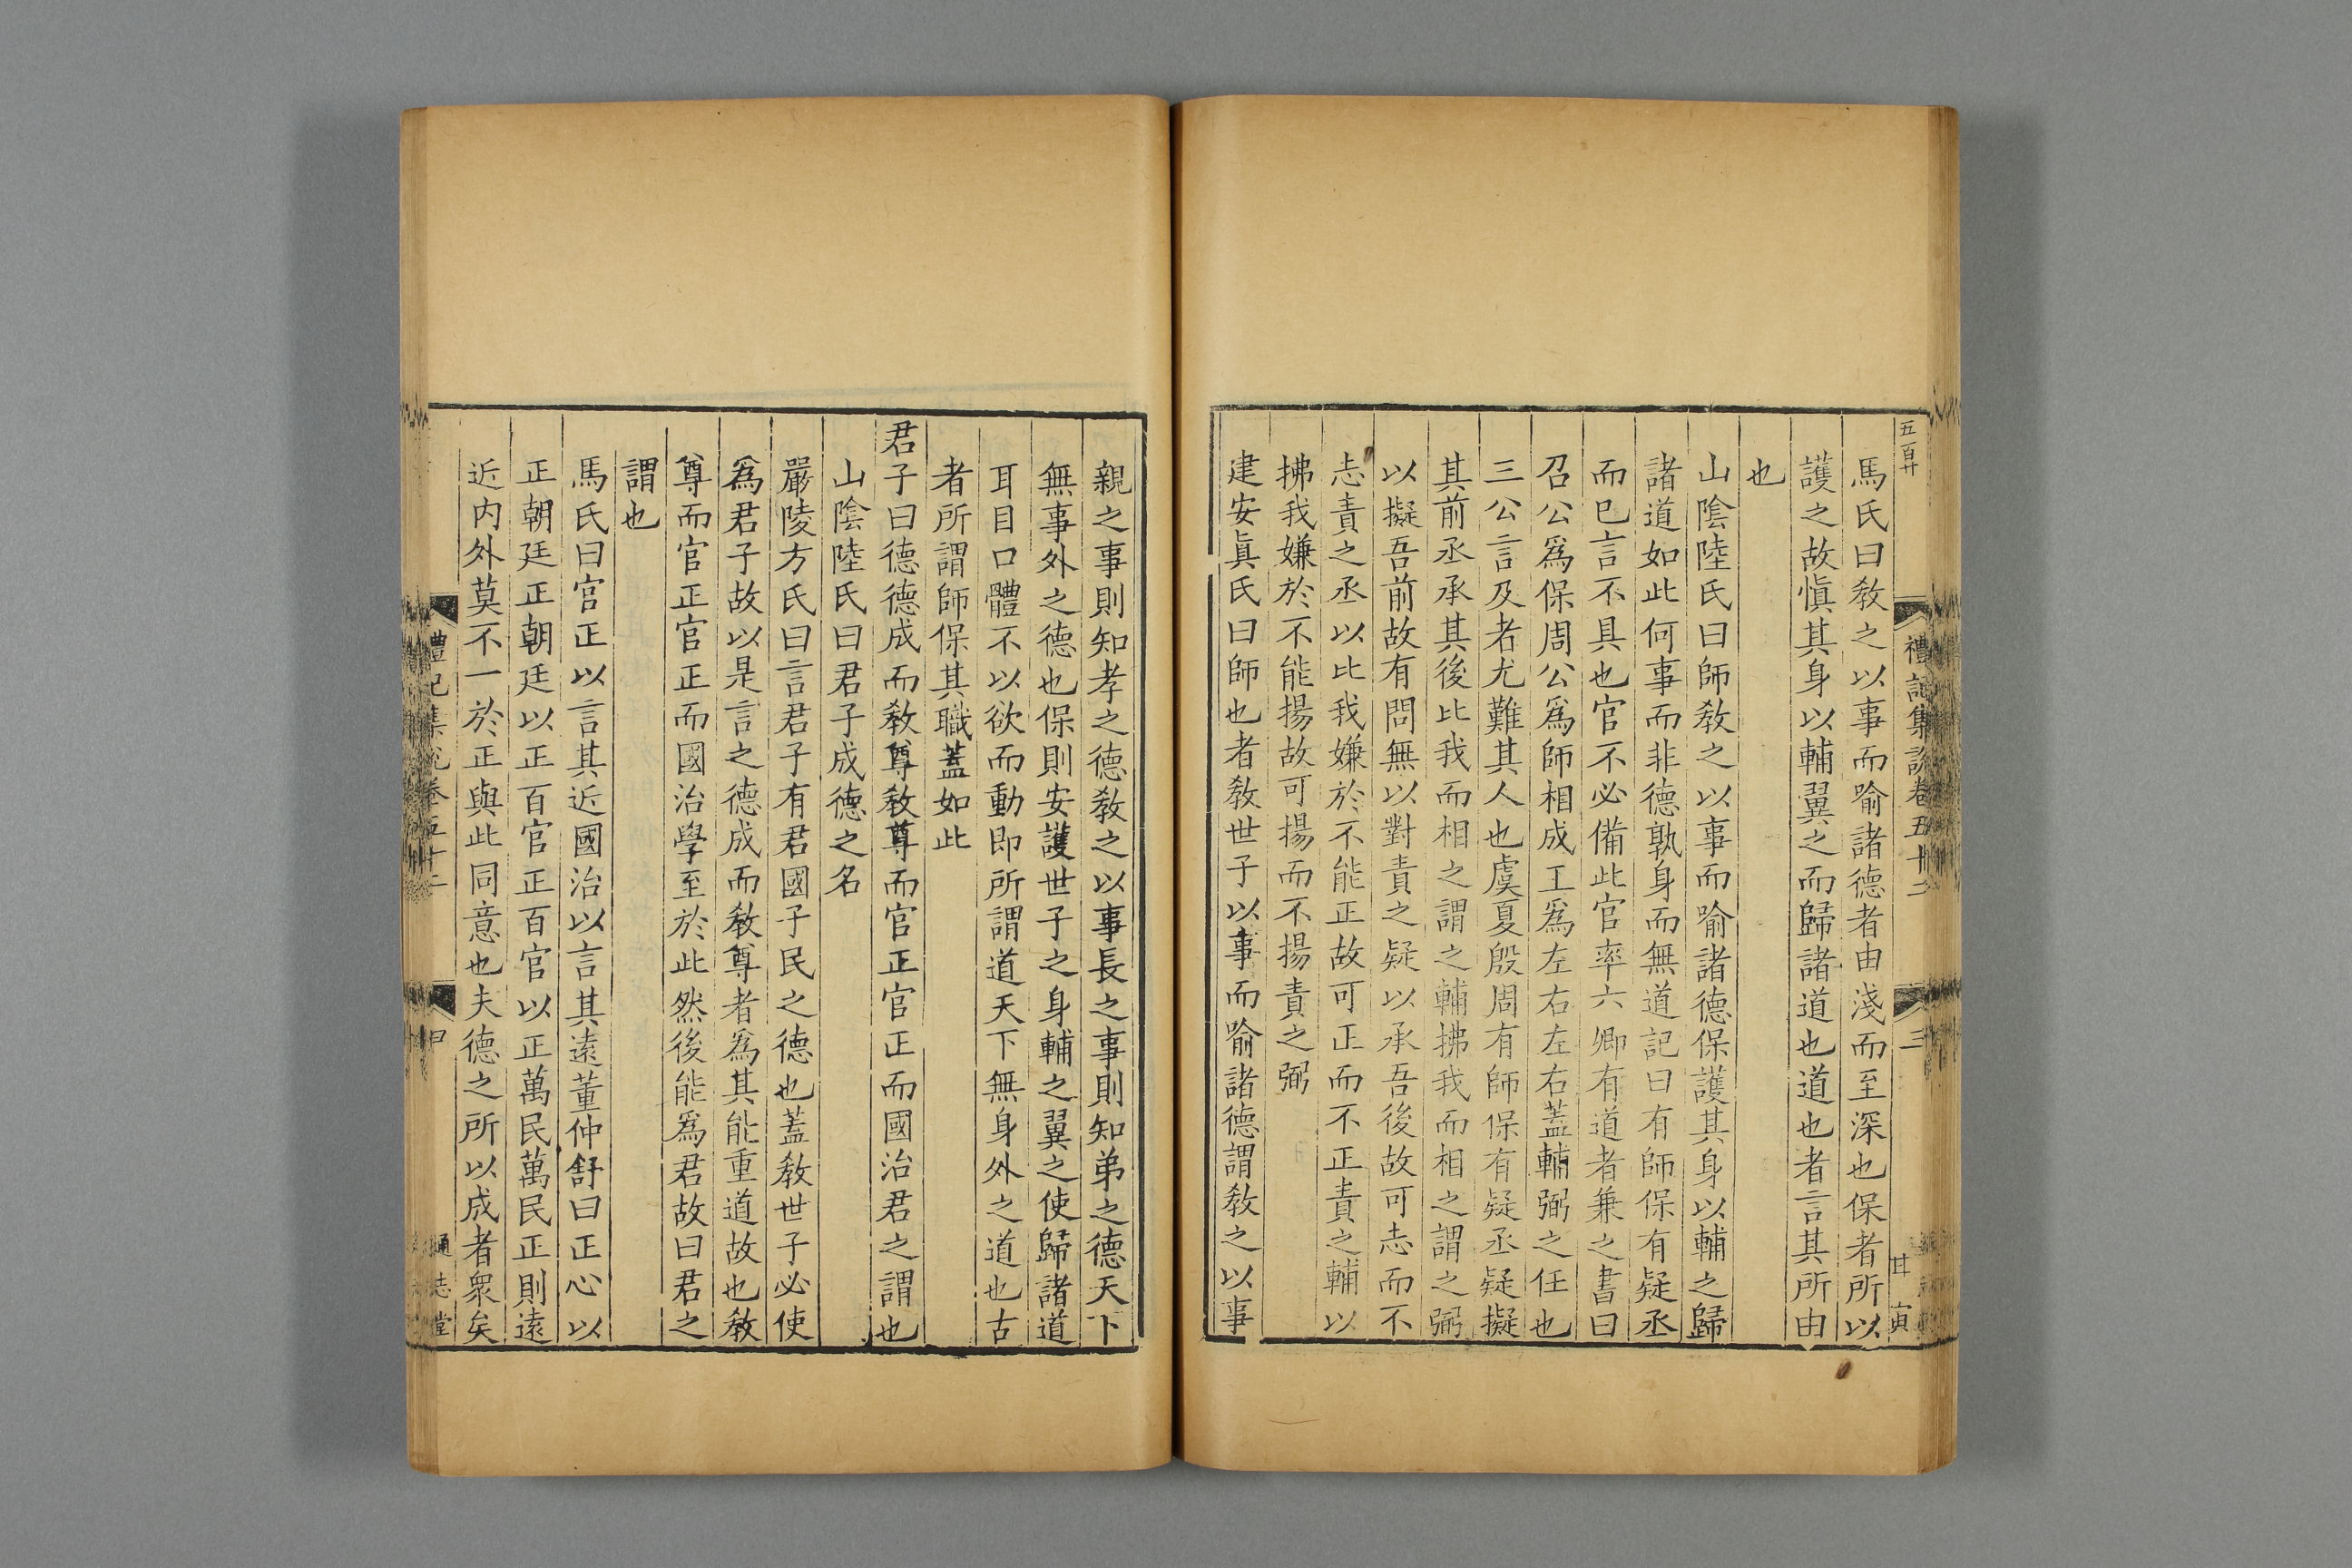 五百廿
禮記集說卷五十二
三
甘寅
馬氏曰敎之以事而喻諸德者由淺而至深也保者所以
護之故愼其身以輔翼之而歸諸道也道也者言其所由
也
山陰陸氏曰師敎之以事而喻諸德保護其身以輔之歸
諸道如此何事而非德孰身而無道記曰有師保有疑丞
而已言不具也官不必備此官率六卿有道者兼之書曰
召公爲保周公爲師相成王爲左右左右蓋輔弼之任也
三公言及者尤難其人也虞夏殷周有師保有疑丞疑擬
其前丞承其後比我而相之謂之輔拂我而相之謂之弼
以擬吾前故有問無以對責之疑以承吾後故可志而不
志責之丞以比我嫌於不能正故可正而不正責之輔以
拂我嫌於不能揚故可揚而不揚責之弼
建安眞氏曰師也者敎世子以事而喻諸德謂敎之以事
親之事則知孝之德敎之以事長之事則知弟之德天下
無事外之德也保則安護世子之身輔之翼之使歸諸道
耳目口體不以欲而動即所謂道天下無身外之道也古
者所謂師保其職蓋如此
君子曰德德成而敎尊敎尊而官正官正而國治君之謂也
山陰陸氏曰君子成德之名
嚴陵方氏曰言君子有君國子民之德也蓋敎世子必使
爲君子故以是言之德成而敎尊者爲其能重道故也敎
尊而官正官正而國治學至於此然後能爲君故曰君之
謂也
馬氏曰官正以言其近國治以言其遠董仲舒曰正心以
正朝廷正朝廷以正百官正百官以正萬民萬民正則遠
近內外莫不一於正與此同意也夫德之所以成者衆矣
禮記集說卷五十二
通志堂